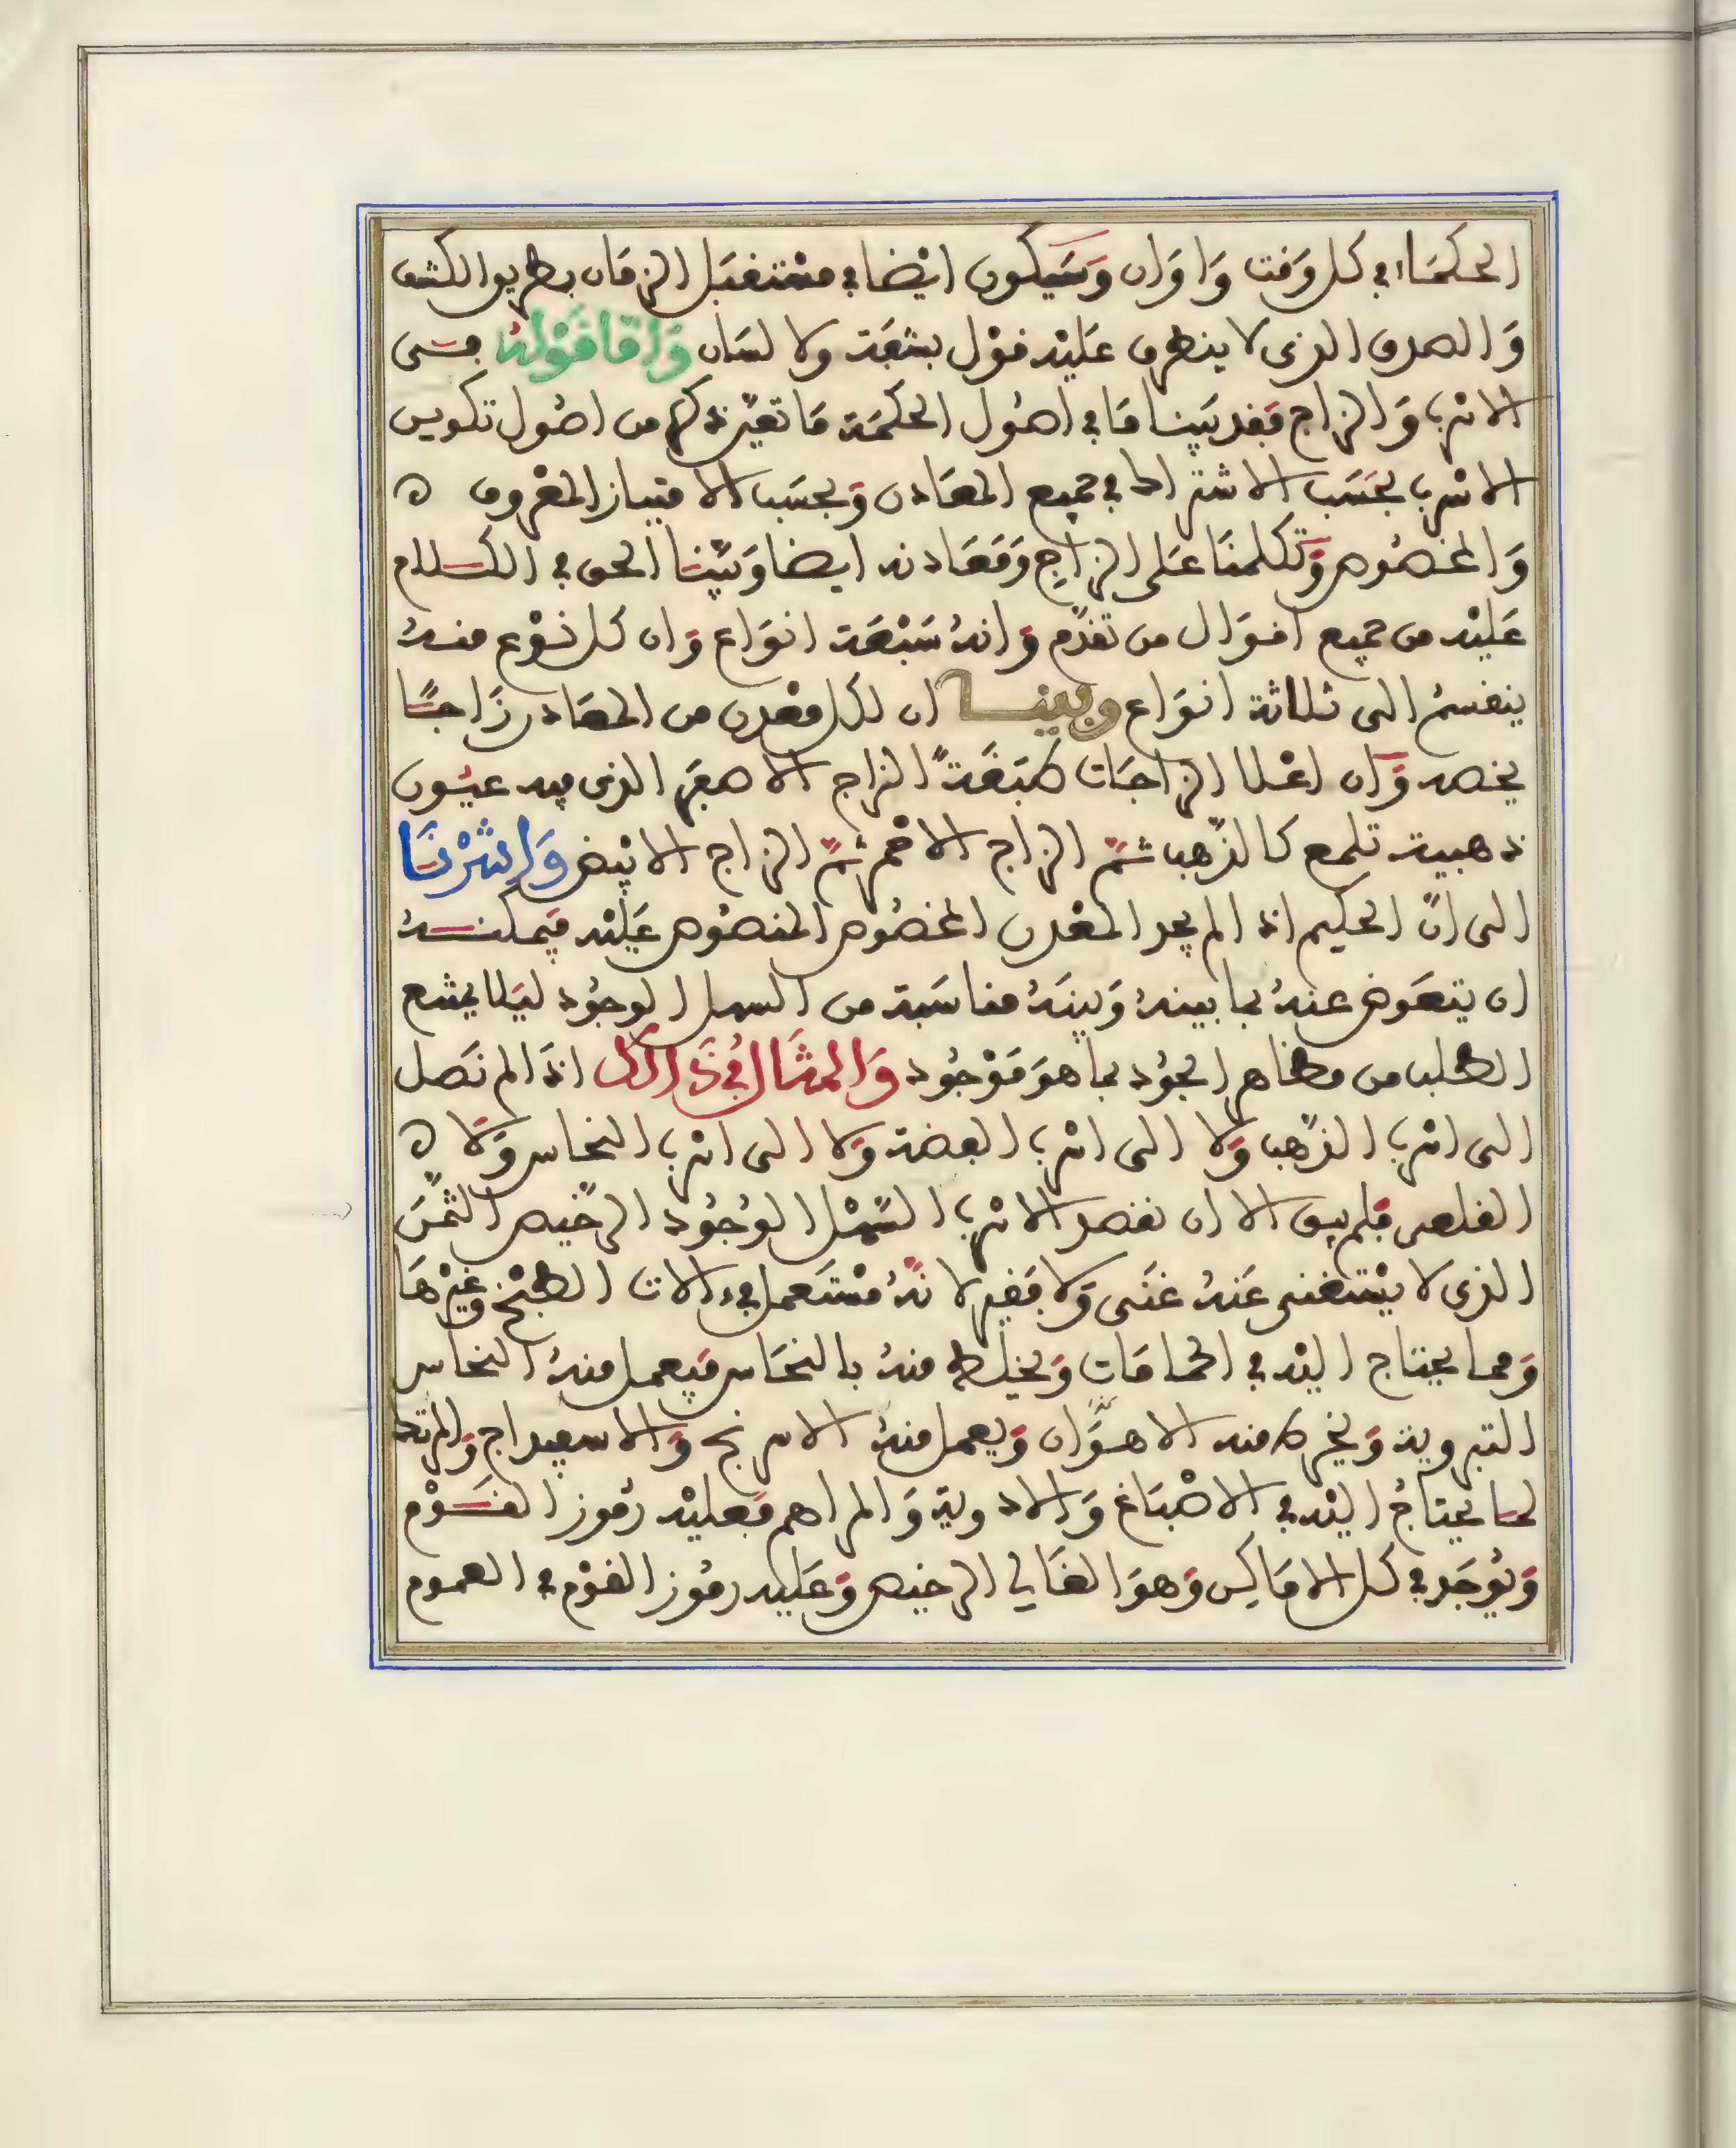 الحكماء في كل وقت واوان وسيكون ايضا في مستقبل الزمان بطريق الكشف
والصدق الذي لا ينطق عليه قول بشفة ولا لسان واما قوله فسى
الاثرب والزاج فقد بينا ما في اصول الحكمة ما تعين ذكره من اصول تكوين
الاثرب بحسب الاشتراك في جميع المعادن وبحسب الامتياز المفروق ه
والمخصوص وتكلمنا على الزاج ومعادنه ايضا وبينا الحق في الكلام
عليه من جميع اقوال من تقدم وانه سبعة انواع وان كل نوع منه
ينقسم الى ثلاثة انواع وبينا ان لكل معدن من المعادن زاجا
يخصه وان اعلا الزاجات طبقة الزاج الاصفر الذي فيه عيون
ذهبية تلمع كالذهب ثم الزاج الاحمر ثم الزاج الابيض واشرنا
الى ان الحكيم اذا لم يجد المعدن المخصوص المنصوص عليه فيمكنه
ان يتعوض عنه بما بينه وبينه مناسبة من السهل الوجود ليلا يمتنع
الطلب من مظاهر الجود بما هو موجود والمثال في ذالك اذا لم نصل
الى اثرب الذهب ولا الى اثرب الفضة ولا الى اثرب النحاس ولا ه
القلعى فلم يبق الا ان نقصد الاثرب السهل الوجود الرخيص الثمن
الذي لا يستغنى عنه غنى ولا فقير لانه مستعمل في ءالات الطبخ وغيرها
ومما يحتاج اليه في الحمامات ويخلط منه بالنحاس فيعمل منه النحاس
ويعمل منه الاسرنج والاسفيداج والمرتك
لما يحتاج اليه في الاصباغ والادوية والمراهم فعليه رموز القوم
ويوجد في كل الاماكن وهو الغالي الرخيص وعليه رموز القوم في العموم